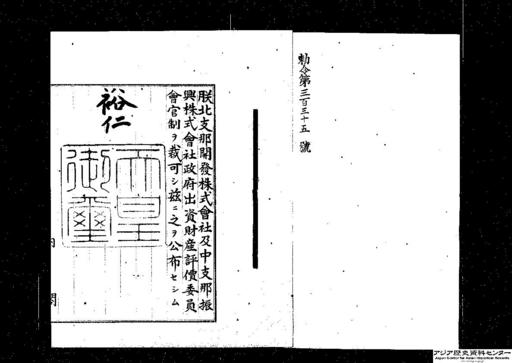 勅令第三百三十五號
朕北支那開發株式會社及中支那振
興株式會社政府出資財産評價委員
會官制ヲ裁可シ茲ニ之ヲ公布セシム
裕仁
天皇
御璽
内閣
アジア歴史資料センター
Japan Center for Asian Historical Records